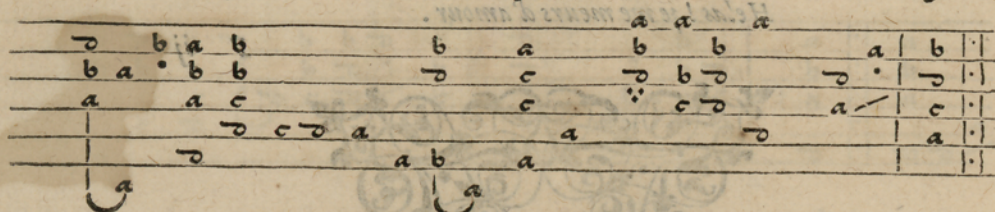 a a a
d b a b b a b b a b
b a b b d c d b d d d
a a c c c d a c
d c d a a d a
d a b a
a a